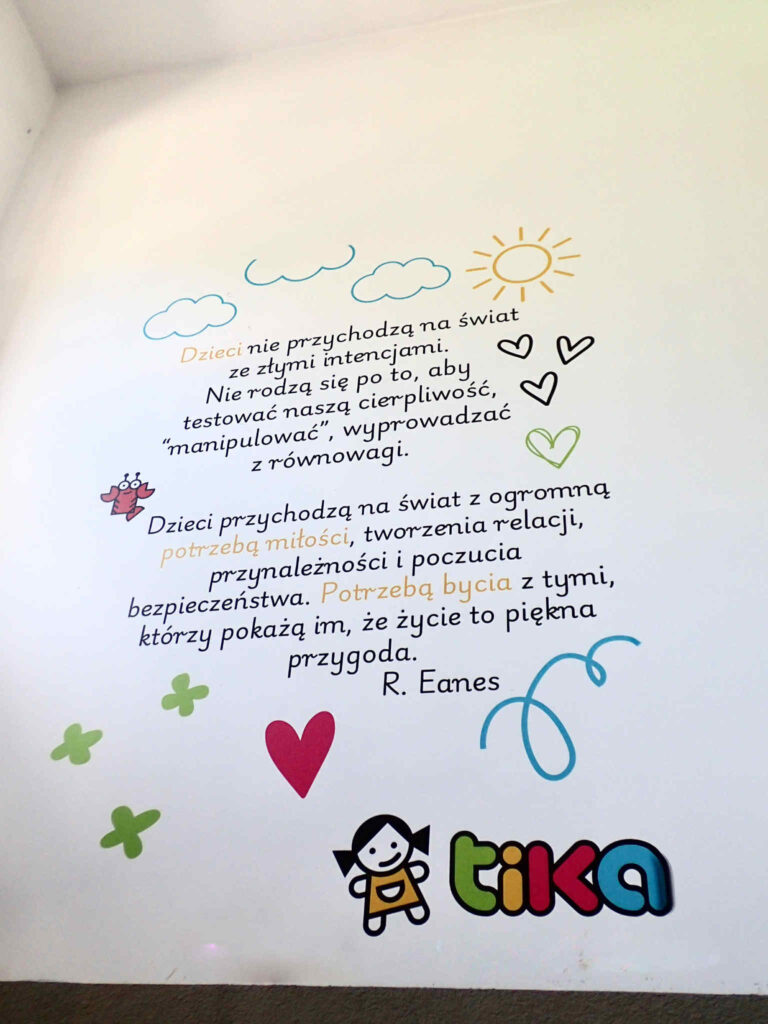 Dzieci nie przychodzą na świat
ze złymi intencjami.
Nie rodzą się po to, aby
testować naszą cierpliwość,
“manipulować”, wyprowadzać
z równowagi.
Dzieci przychodzą na świat z ogromną
potrzebą miłości, tworzenia relacji,
przynależności i poczucia
bezpieczeństwa. Potrzebą bycia z tymi,
którzy pokażą im, że życie to piękna
przygoda.
R. Eanes
tika